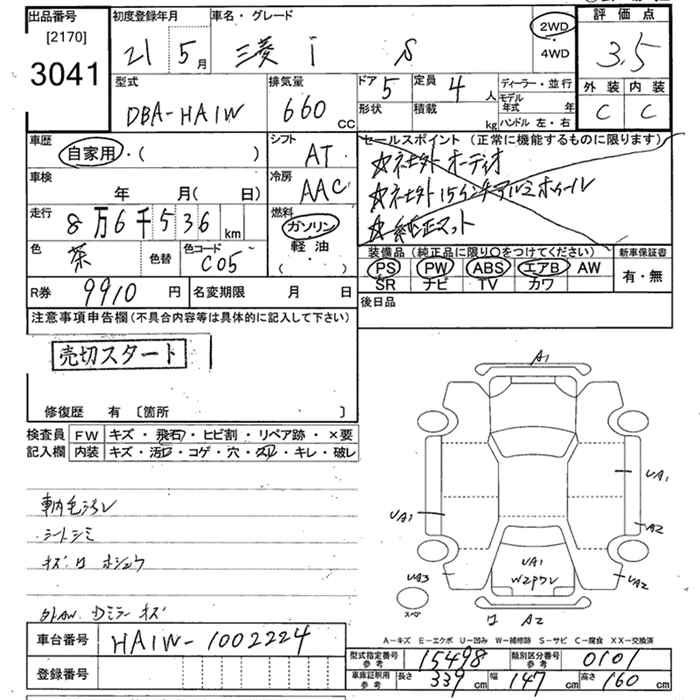 出品番号 [2170] 3041
初度登録年月 21 5月
車名・グレード 三菱 i S
2WD・4WD
評価点 3.5
外装 C 内装 C
型式 DBA-HA1W
排気量 660 CC
ドア 5 形状
定員 4人 積載 kg
ディーラー・並行
モデル年式 年
ハンドル 左・右
車歴 自家用・( )
シフト AT
セールスポイント (正常に機能するものに限ります)
☆ネ社外 オーディオ
☆ネ社外 15インチアルミホイール
☆純正マット
車検 年 月( 日)
冷房 AAC
走行 8万6千536 km
燃料 ガソリン 軽油 ( ・ )
色 茶 色替 色コード C05
装備品 (純正品に限り○をつけてください)
新車保証書 有・無
PS PW ABS エアB AW
SR ナビ TV カワ
R券 9910 円
名変期限 月 日
後日品
注意事項申告欄(不具合内容等は具体的に記入して下さい)
売切スタート
修復歴 有 [箇所 ]
検査員記入欄
FW キズ・飛石・ヒビ割・リペア跡・×要
内装 キズ・汚レ・コゲ・穴・スレ・キレ・破レ
シートシミ
外AW Dミラーキズ
車台番号 HA1W-1002224
登録番号
A1
UA1
UA1
A2
UA1
W2PプV
UA3
UA2
スペア
ロ A2
A-キズ E-エクボ U-凹み W-補修跡 S-サビ C-腐食 XX-交換済
型式指定番号 参考 15498
類別区分番号 参考 0101
車庫証明用 参考 長さ 339 cm 幅 147 cm 高さ 160 cm